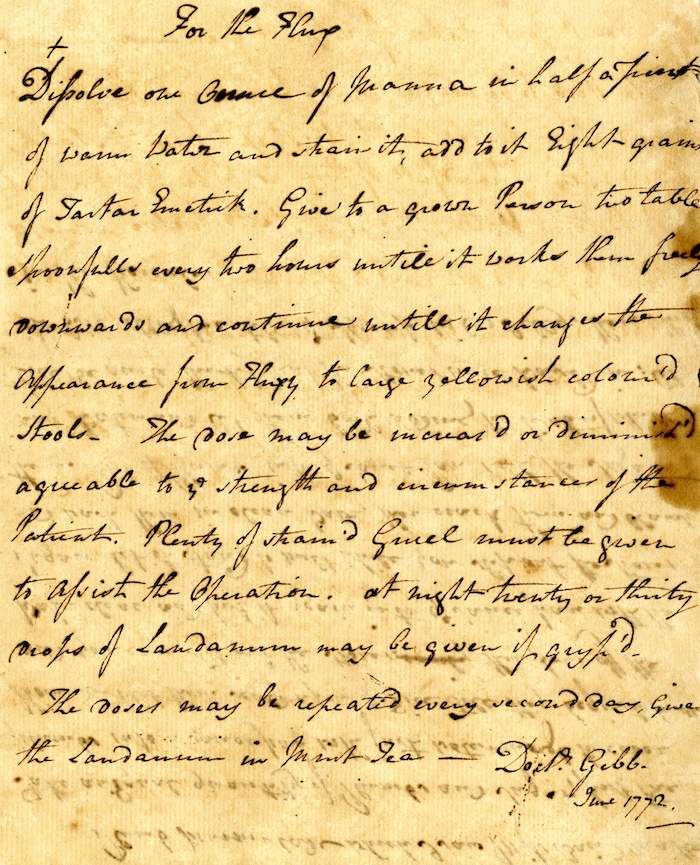 For the Flux
+
Dissolve one Ounce of Manna in half a pint
of warm Water and strain it, add to it Eight grains
of Tartar Emetick. Give to a grown Person two table
spoonfulls every two hours untill it works them freely
downwards and continue untill it changes the
Appearance from Fluxy to large yellowish colour'd
Stools - The dose may be increas'd or diminish'd
agreeable to ye strength and circumstances of the
Patient. Plenty of strain'd Gruel must be given
to Assist the Operation. at night twenty or thirty
drops of Laudanum may be given if gryp'd.
The doses may be repeated every second day, Give
the Laudanum in Mint Tea — Doctr. Gibb.
June 1772.